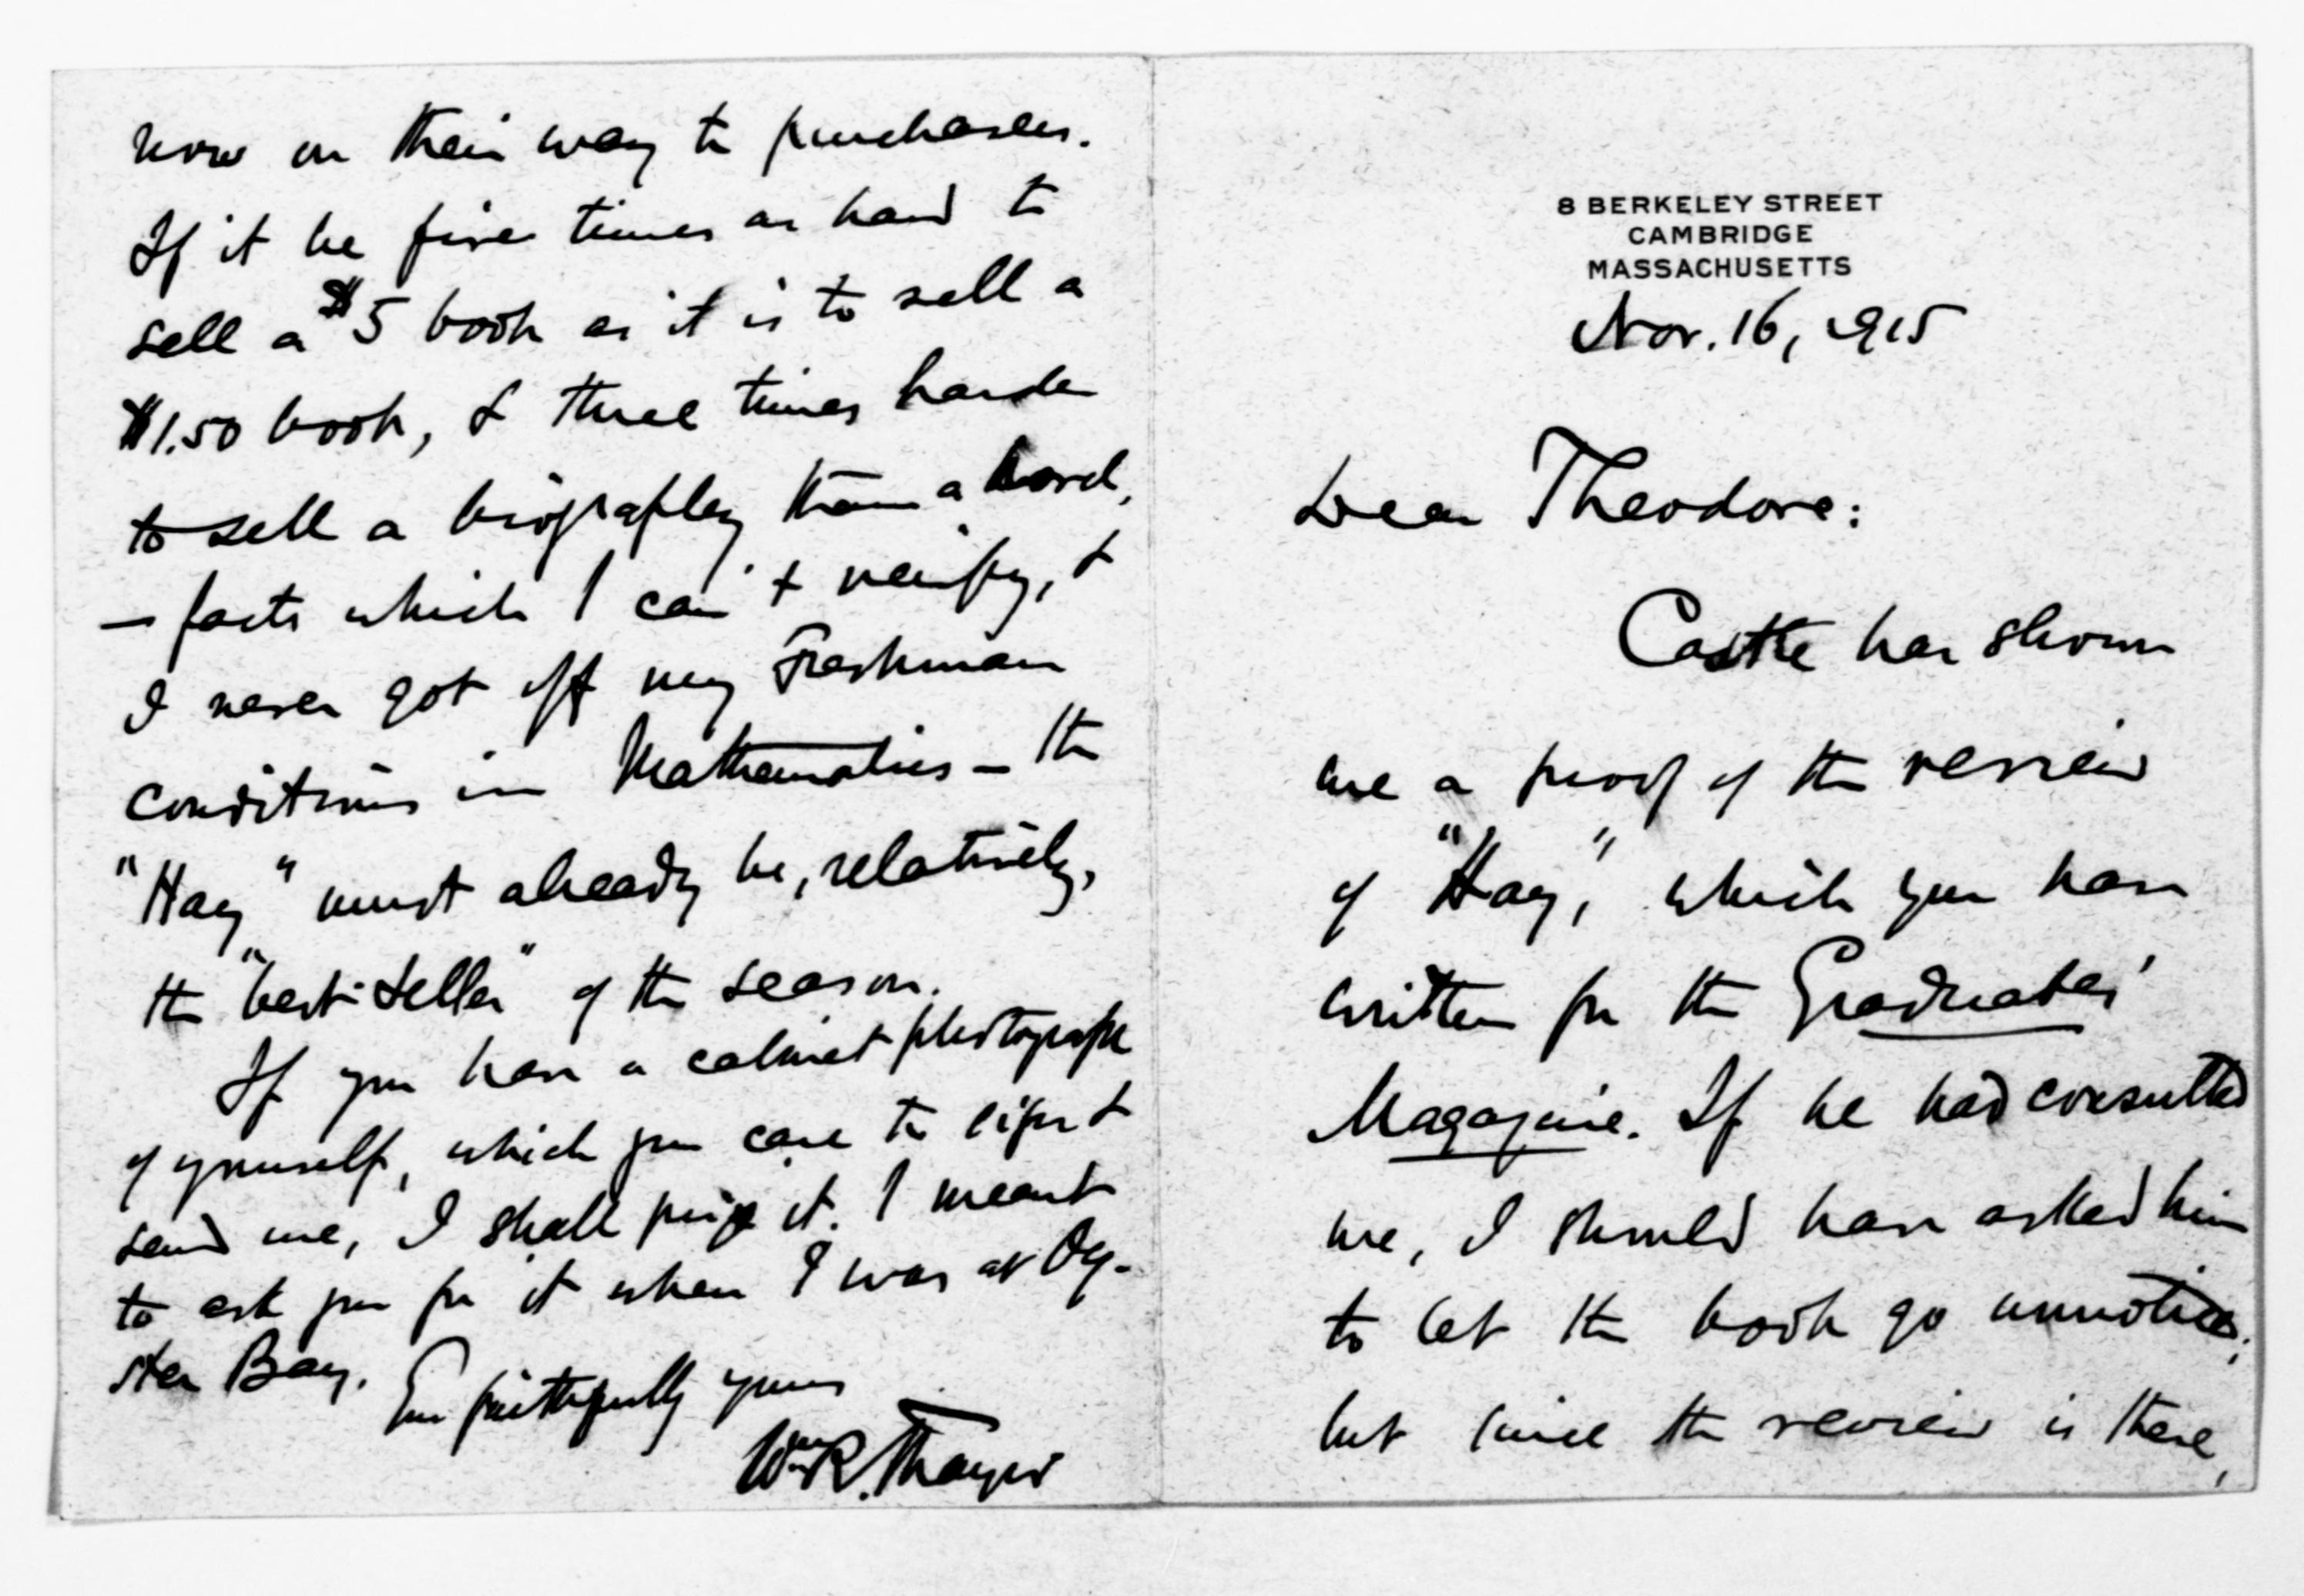 8 BERKELEY STREET
CAMBRIDGE
MASSACHUSETTS
Nov. 16, 1915
Dear Theodore:
Castle has shown
me a proof of the review
of "Hay," which you have
written for the Graduates'
Magazine. If he had consulted
me, I should have asked him
to let the book go unnoticed;
but since the review is there,
now on their way to purchasers.
If it be five times as hard to
sell a $5 book as it is to sell a
$1.50 book, & three times harder
to sell a biography than a novel,
— facts which I can't verify, &
I never got off my Freshman
conditions in Mathematics — the
"Hay" must already be, relatively,
the "best-seller" of the season.
If you have a cabinet photograph
of yourself, which you care to sign &
send me, I shall prize it. I meant
to ask you for it when I was at Oy-
ster Bay.
Ever faithfully yours
Wm R. Thayer